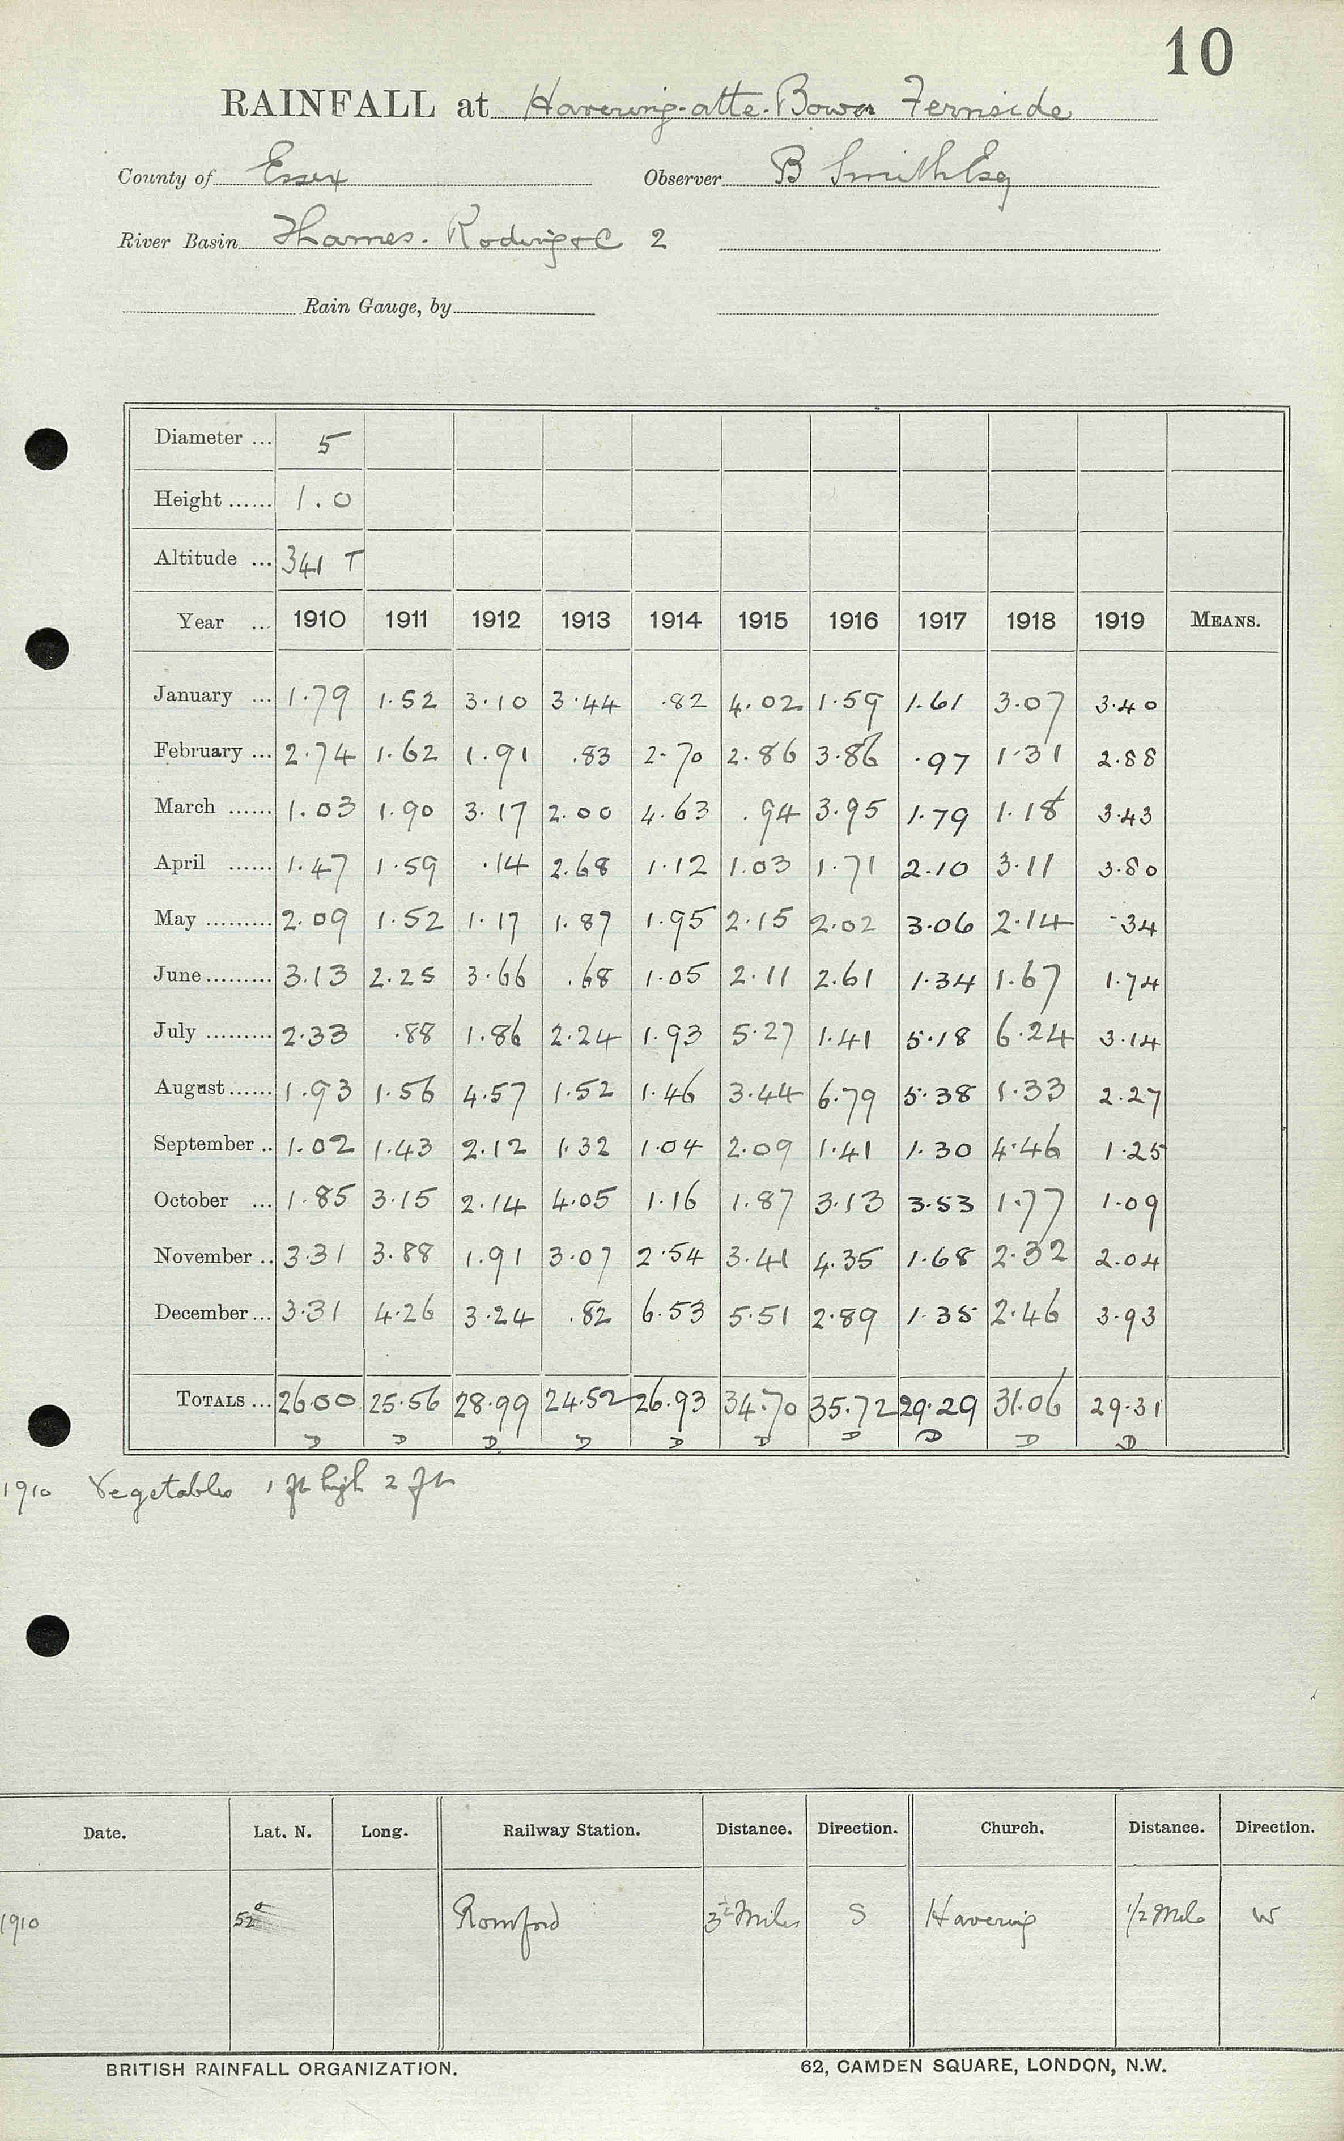 10
RAINFALL at Havering-atte-Bower Fernside
County of Essex Observer B Smith Esq
River Basin Thames. Roding &C 2
Rain Gauge, by
Diameter ... 5
Height ...... 1.0
Altitude ... 341 T
Year ... 1910 1911 1912 1913 1914 1915 1916 1917 1918 1919 MEANS.
January ... 1.79 1.52 3.10 3.44 .82 4.02 1.59 1.61 3.07 3.40
February ... 2.74 1.62 1.91 .83 2.70 2.86 3.86 .97 1.31 2.88
March ...... 1.03 1.90 3.17 2.00 4.63 .94 3.95 1.79 1.18 3.43
April ...... 1.47 1.59 .14 2.68 1.12 1.03 1.71 2.10 3.11 3.80
May ......... 2.09 1.52 1.17 1.87 1.95 2.15 2.02 3.06 2.14 .34
June ......... 3.13 2.25 3.66 .68 1.05 2.11 2.61 1.34 1.67 1.74
July ......... 2.33 .88 1.86 2.24 1.93 5.27 1.41 5.18 6.24 3.14
August ...... 1.93 1.56 4.57 1.52 1.46 3.44 6.79 5.38 1.33 2.27
September .. 1.02 1.43 2.12 1.32 1.04 2.09 1.41 1.30 4.46 1.25
October ... 1.85 3.15 2.14 4.05 1.16 1.87 3.13 3.53 1.77 1.09
November .. 3.31 3.88 1.91 3.07 2.54 3.41 4.35 1.68 2.32 2.04
December ... 3.31 4.26 3.24 .82 6.53 5.51 2.89 1.35 2.46 3.93
TOTALS ... 26.00 25.56 28.99 24.52 26.93 34.70 35.72 29.29 31.06 29.31
D D D D D D D D D D
1910 Vegetables 1 ft high 2 ft
Date. Lat. N. Long. Railway Station. Distance. Direction. Church. Distance. Direction.
1910 52° Romford 3½ Miles S Havering 1/2 Mile W
BRITISH RAINFALL ORGANIZATION. 62, CAMDEN SQUARE, LONDON, N.W.